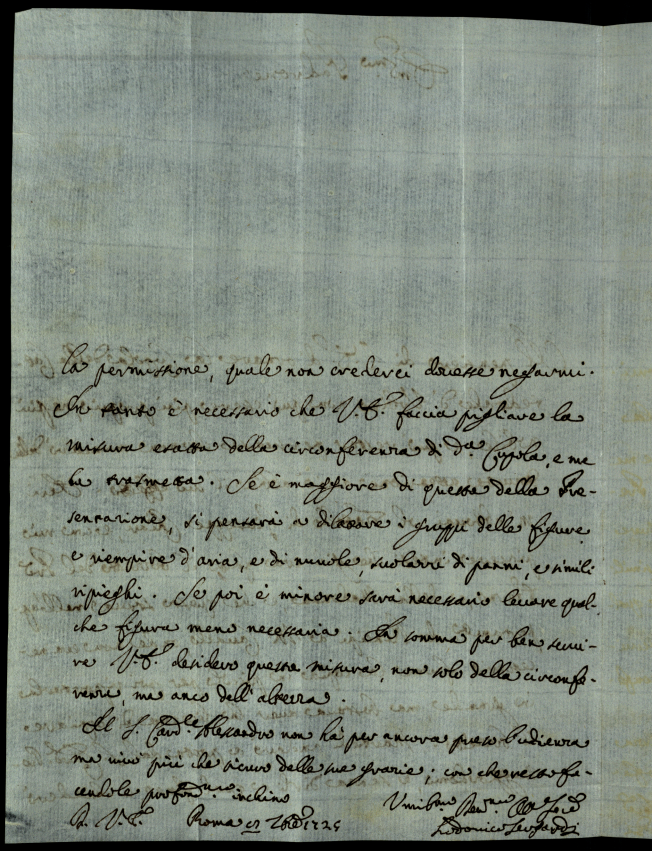 la permissione, quale non crederei dovesse negarmi.
In tanto è necessario che V.E. faccia pigliare la
misura esatta della circonferenza di d.a Cupola, e me
la trasmetta. Se è maggiore di questa della Pre-
sentazione, si pensarà a dilatare i gruppi delle figure
e riempire d'aria, e di nuvole, svolazzi di panni, e simili
ripieghi. Se poi è minore sarà necessario levare qual-
che figura meno necessaria. In somma per ben servi-
re V.E. desidero questa misura, non solo della circonfe-
renza, ma anco dell'altezza.
Il S. Card.le Alessandro non hà per ancora preso l'udienza
ma vivo più che sicuro delle sue grazie; con che resto fa-
cendole profond.mo inchino
Di V.E. Roma 7bre 1725
Umil.mo Dev.mo
Lodovico Sergardi